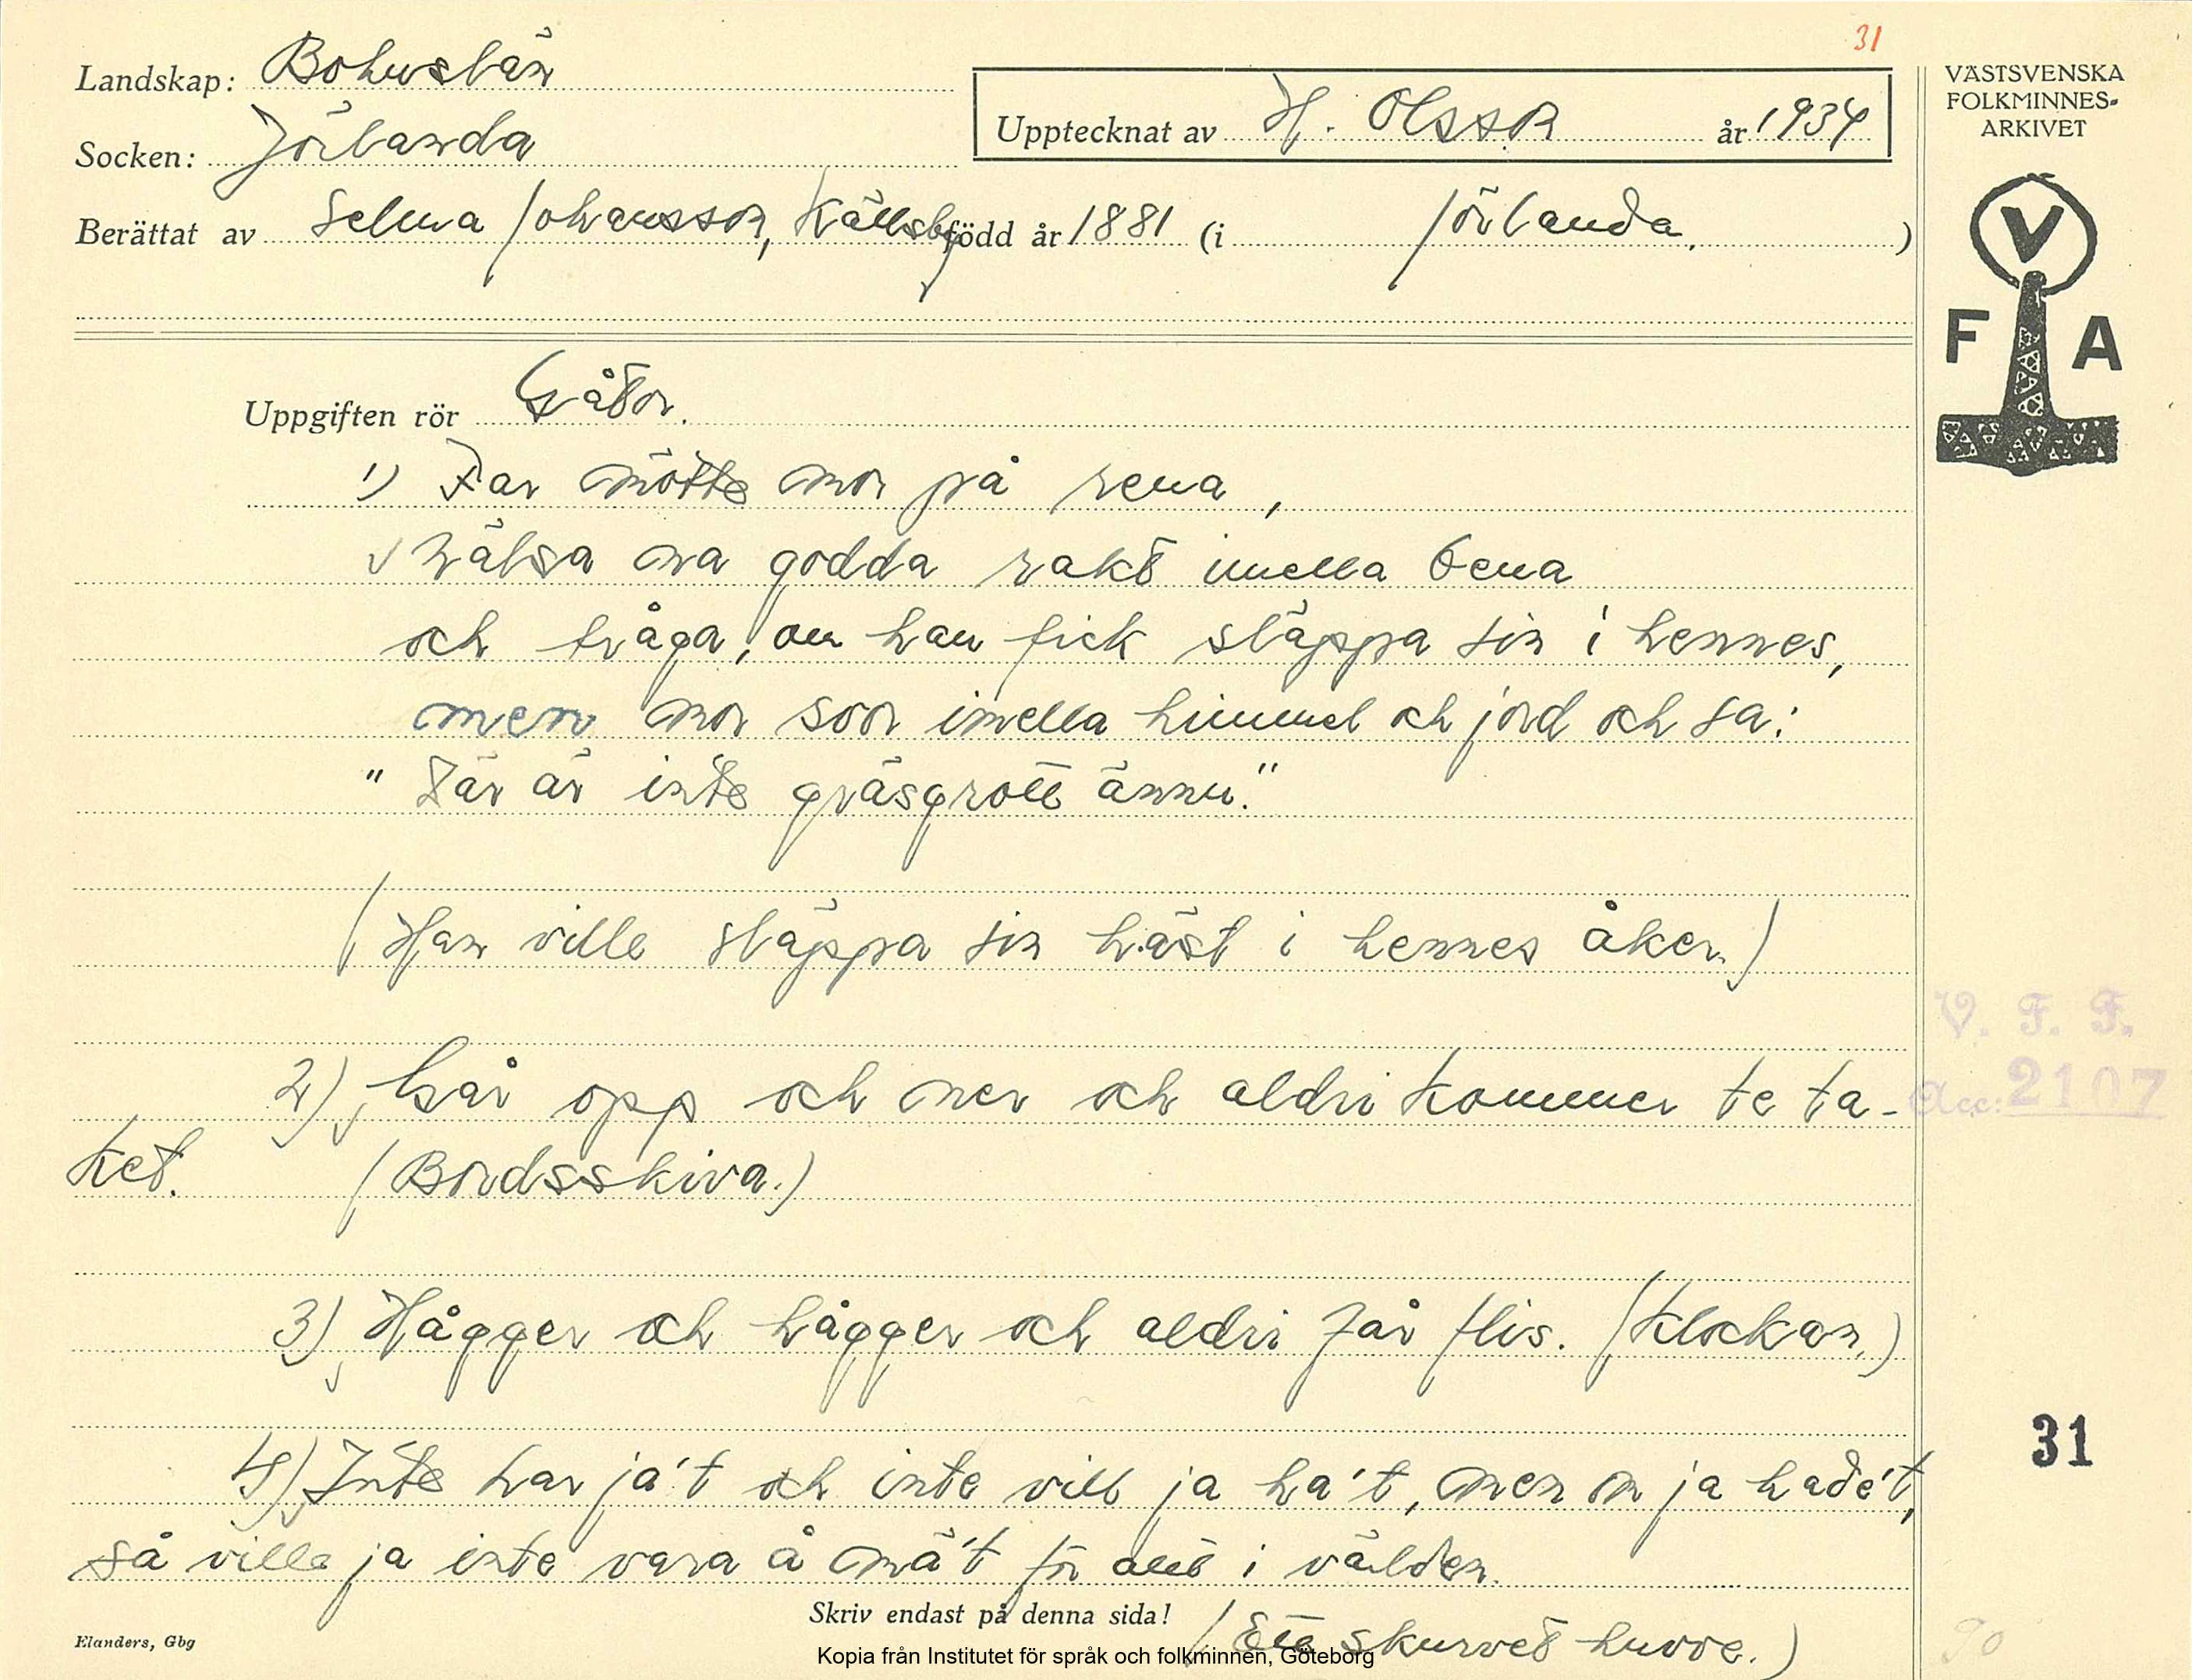 31
Landskap: Bohuslän
Socken: Jörlanda
Upptecknat av H. Olsson år 1934
Berättat av Selma Johansson, Källsby född år 1881 (i Jörlanda.)
VÄSTSVENSKA
FOLKMINNES-
ARKIVET
V
F A
Uppgiften rör Gåtor.
1) Far mötte mor på rena,
hälsa na godda rakt imella bena
och fråga, om han fick släppa sin i hennes,
men mor svor imella himmel och jord och sa:
" Där är inte gräsgrott ännu."
(Han ville släppa sin häst i hennes åker.)
2) Går opp och ner och aldri kommer te ta-
ket. (Bordsskiva.)
V. F. F.
Acc: 2107
3) Hågger och hågger och aldri får flis. (Klockan.)
4) Inte har ja't och inte vill ja ha't, men om ja hade't,
så ville ja inte vara å mä't för allt i världen.
(Ett skurvet huvve.)
31
Skriv endast på denna sida!
Elanders, Gbg
Kopia från Institutet för språk och folkminnen, Göteborg
90